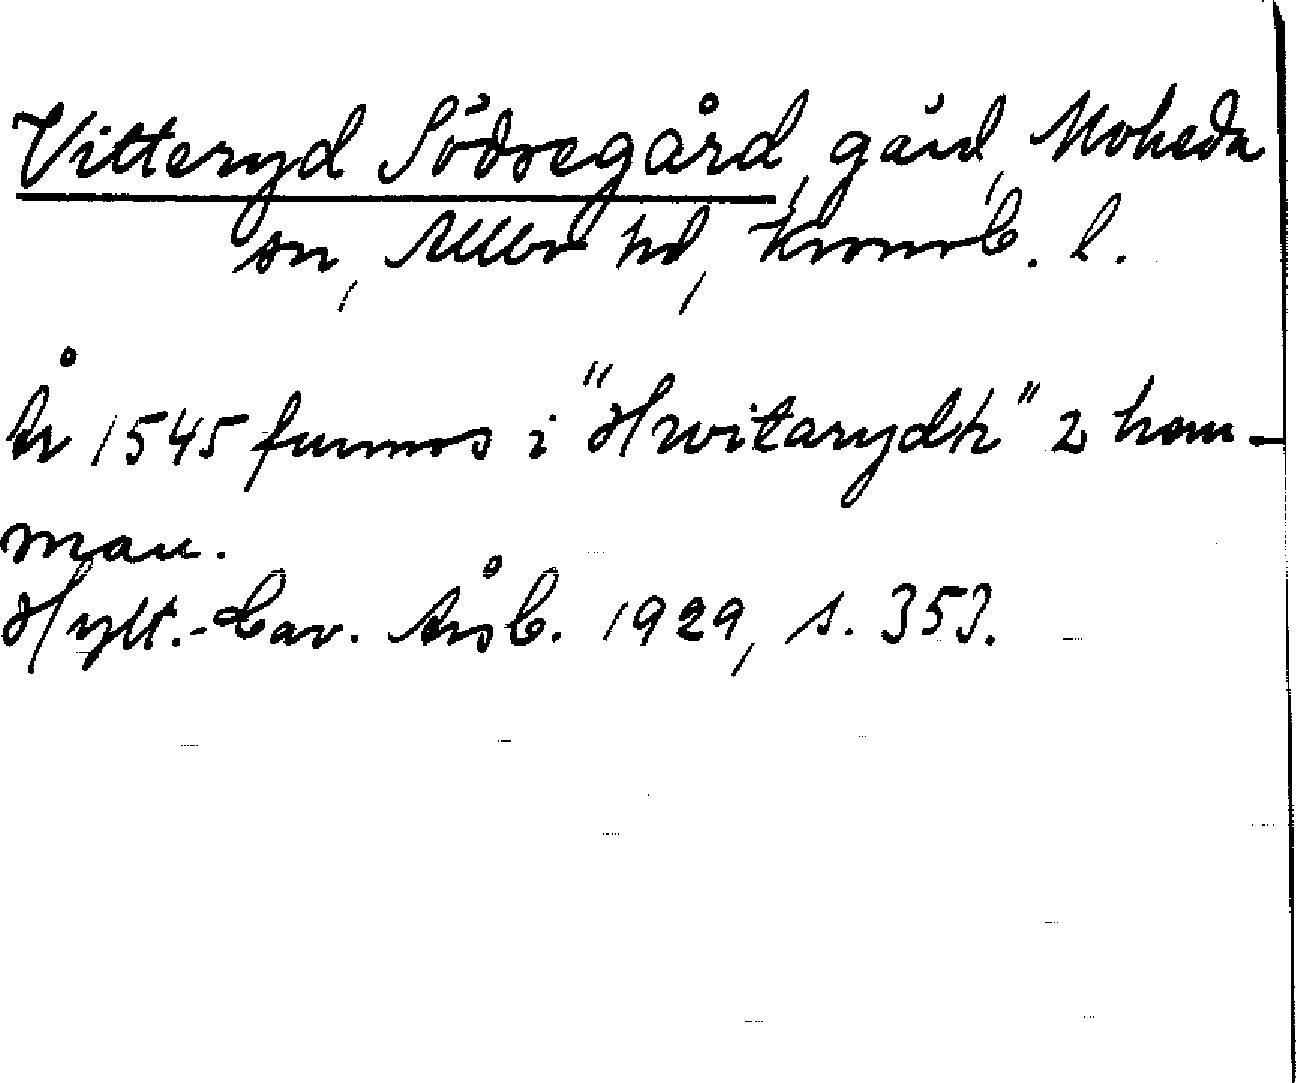 Vitteryd Södregård, gård, Moheda
sn, Allbo hd, Kronob. l.
År 1545 funnos i "Hwitarydh" 2 hem-
man.
Hylt.-Cav. Årsb. 1929, s. 353.